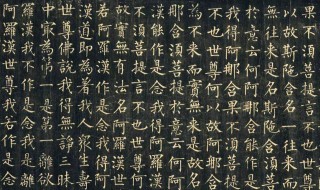 果不須菩提言不也世尊
以故斯陁含名一往來而
無往來是名斯陁含須菩
於意云何阿那含能作是
我得阿那含果不須菩提
不也世尊何以故阿那含
為不來而實無來是故名
那含須菩提於意云何阿
漢能作是念我得阿羅漢
不須菩提言不也世尊何
故實無有法名阿羅漢世
若阿羅漢作是念我得阿
漢道即為著我人眾生壽
世尊佛說我得無諍三昧
中㝡為第一是第一離欲
羅漢我不作是念我是離
阿羅漢世尊我若作是念